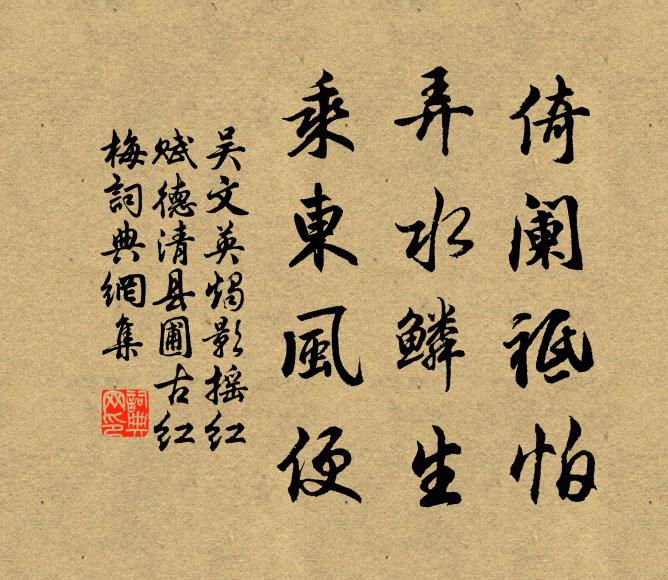 倚阑祗怕
弄水鳞生
乘東風便
吴文英燭影摇红
赋德清县圃古红
梅詞典網集
詞典网印